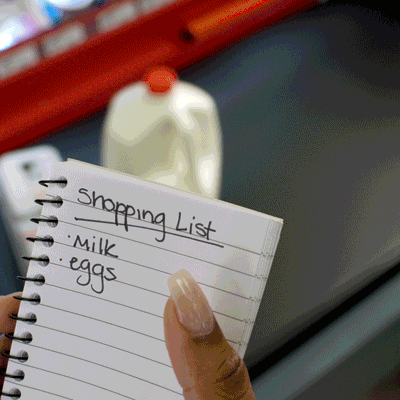 Shopping List
· Milk
· eggs